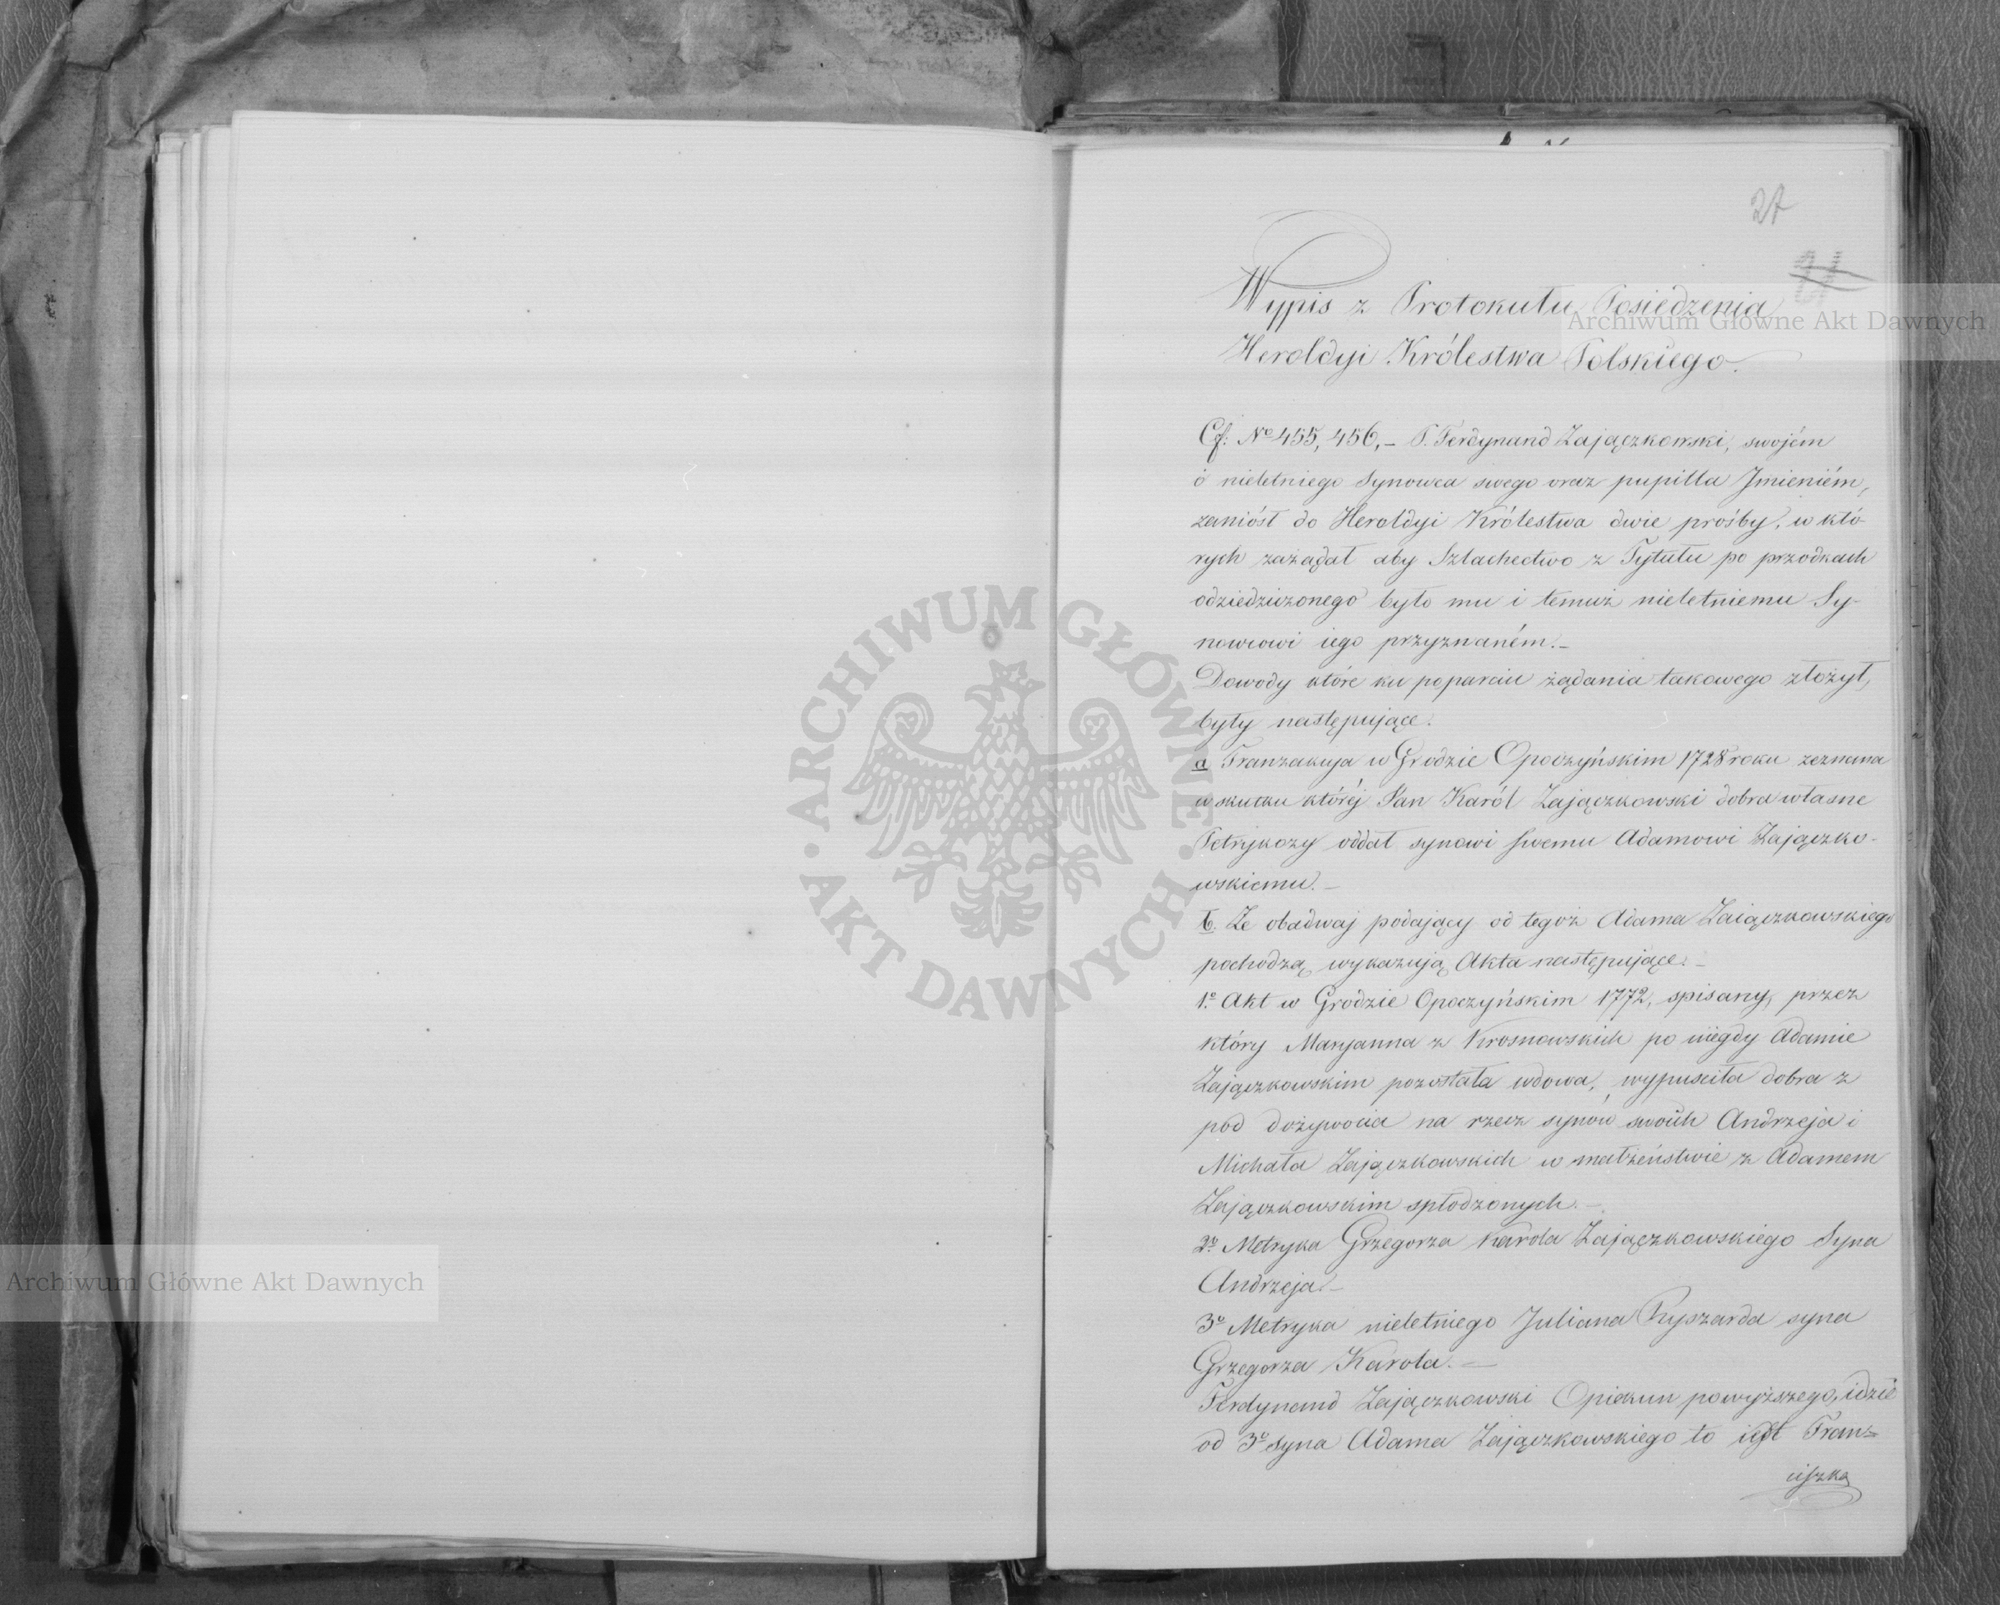 27
Wypis z Protokułu Posiedzenia
Heroldyi Królestwa Polskiego.
Cf: No 455, 456, - P. Ferdynand Zajączkowski, swojém
i nieletniego Synowca swego oraz pupilla Jmieniém,
zaniósł do Heroldyi Królestwa dwie prośby, w któ-
rych zażądał aby Szlachectwo z Tytułu po przodkach
odziedziczonego było mu i temuż nieletniemu Sy-
nowcowi iego przyznaném. -
Dowody które ku poparciu żądania takowego złożył,
były następujące.
a Tranzakcyja w Grodzie Opoczyńskim 1728 roku zeznana
w skutku któréj Pan Karól Zajączkowski dobra własne
Petrykozy oddał synowi swemu Adamowi Zajączko-
wskiemu. -
b. Że obadwaj podający od tegoż Adama Zaiączkowskiego
pochodzą, wykazują Akta następujące. -
1o. Akt w Grodzie Opoczyńskim 1772, spisany, przez
który Maryanna z Krosnowskich po niegdy Adamie
Zajączkowskim pozostała wdowa, wypuściła dobra z
pod dożywocia na rzecz synów swoich Andrzeja i
Michała Zajączkowskich w małżeństwie z Adamem
Zajączkowskim spłodzonych. -
2o. Metryka Grzegorza Karola Zajączkowskiego Syna
Andrzeja. -
3o Metryka nieletniego Juliana Ryszarda syna
Grzegorza Karola. -
Ferdynand Zajączkowski Opiekun powyższego, idzie
od 3o syna Adama Zajączkowskiego to iest Fran=
ciszka
Archiwum Główne Akt Dawnych
Archiwum Główne Akt Dawnych
ARCHIWUM GŁÓWNE · AKT DAWNYCH ·